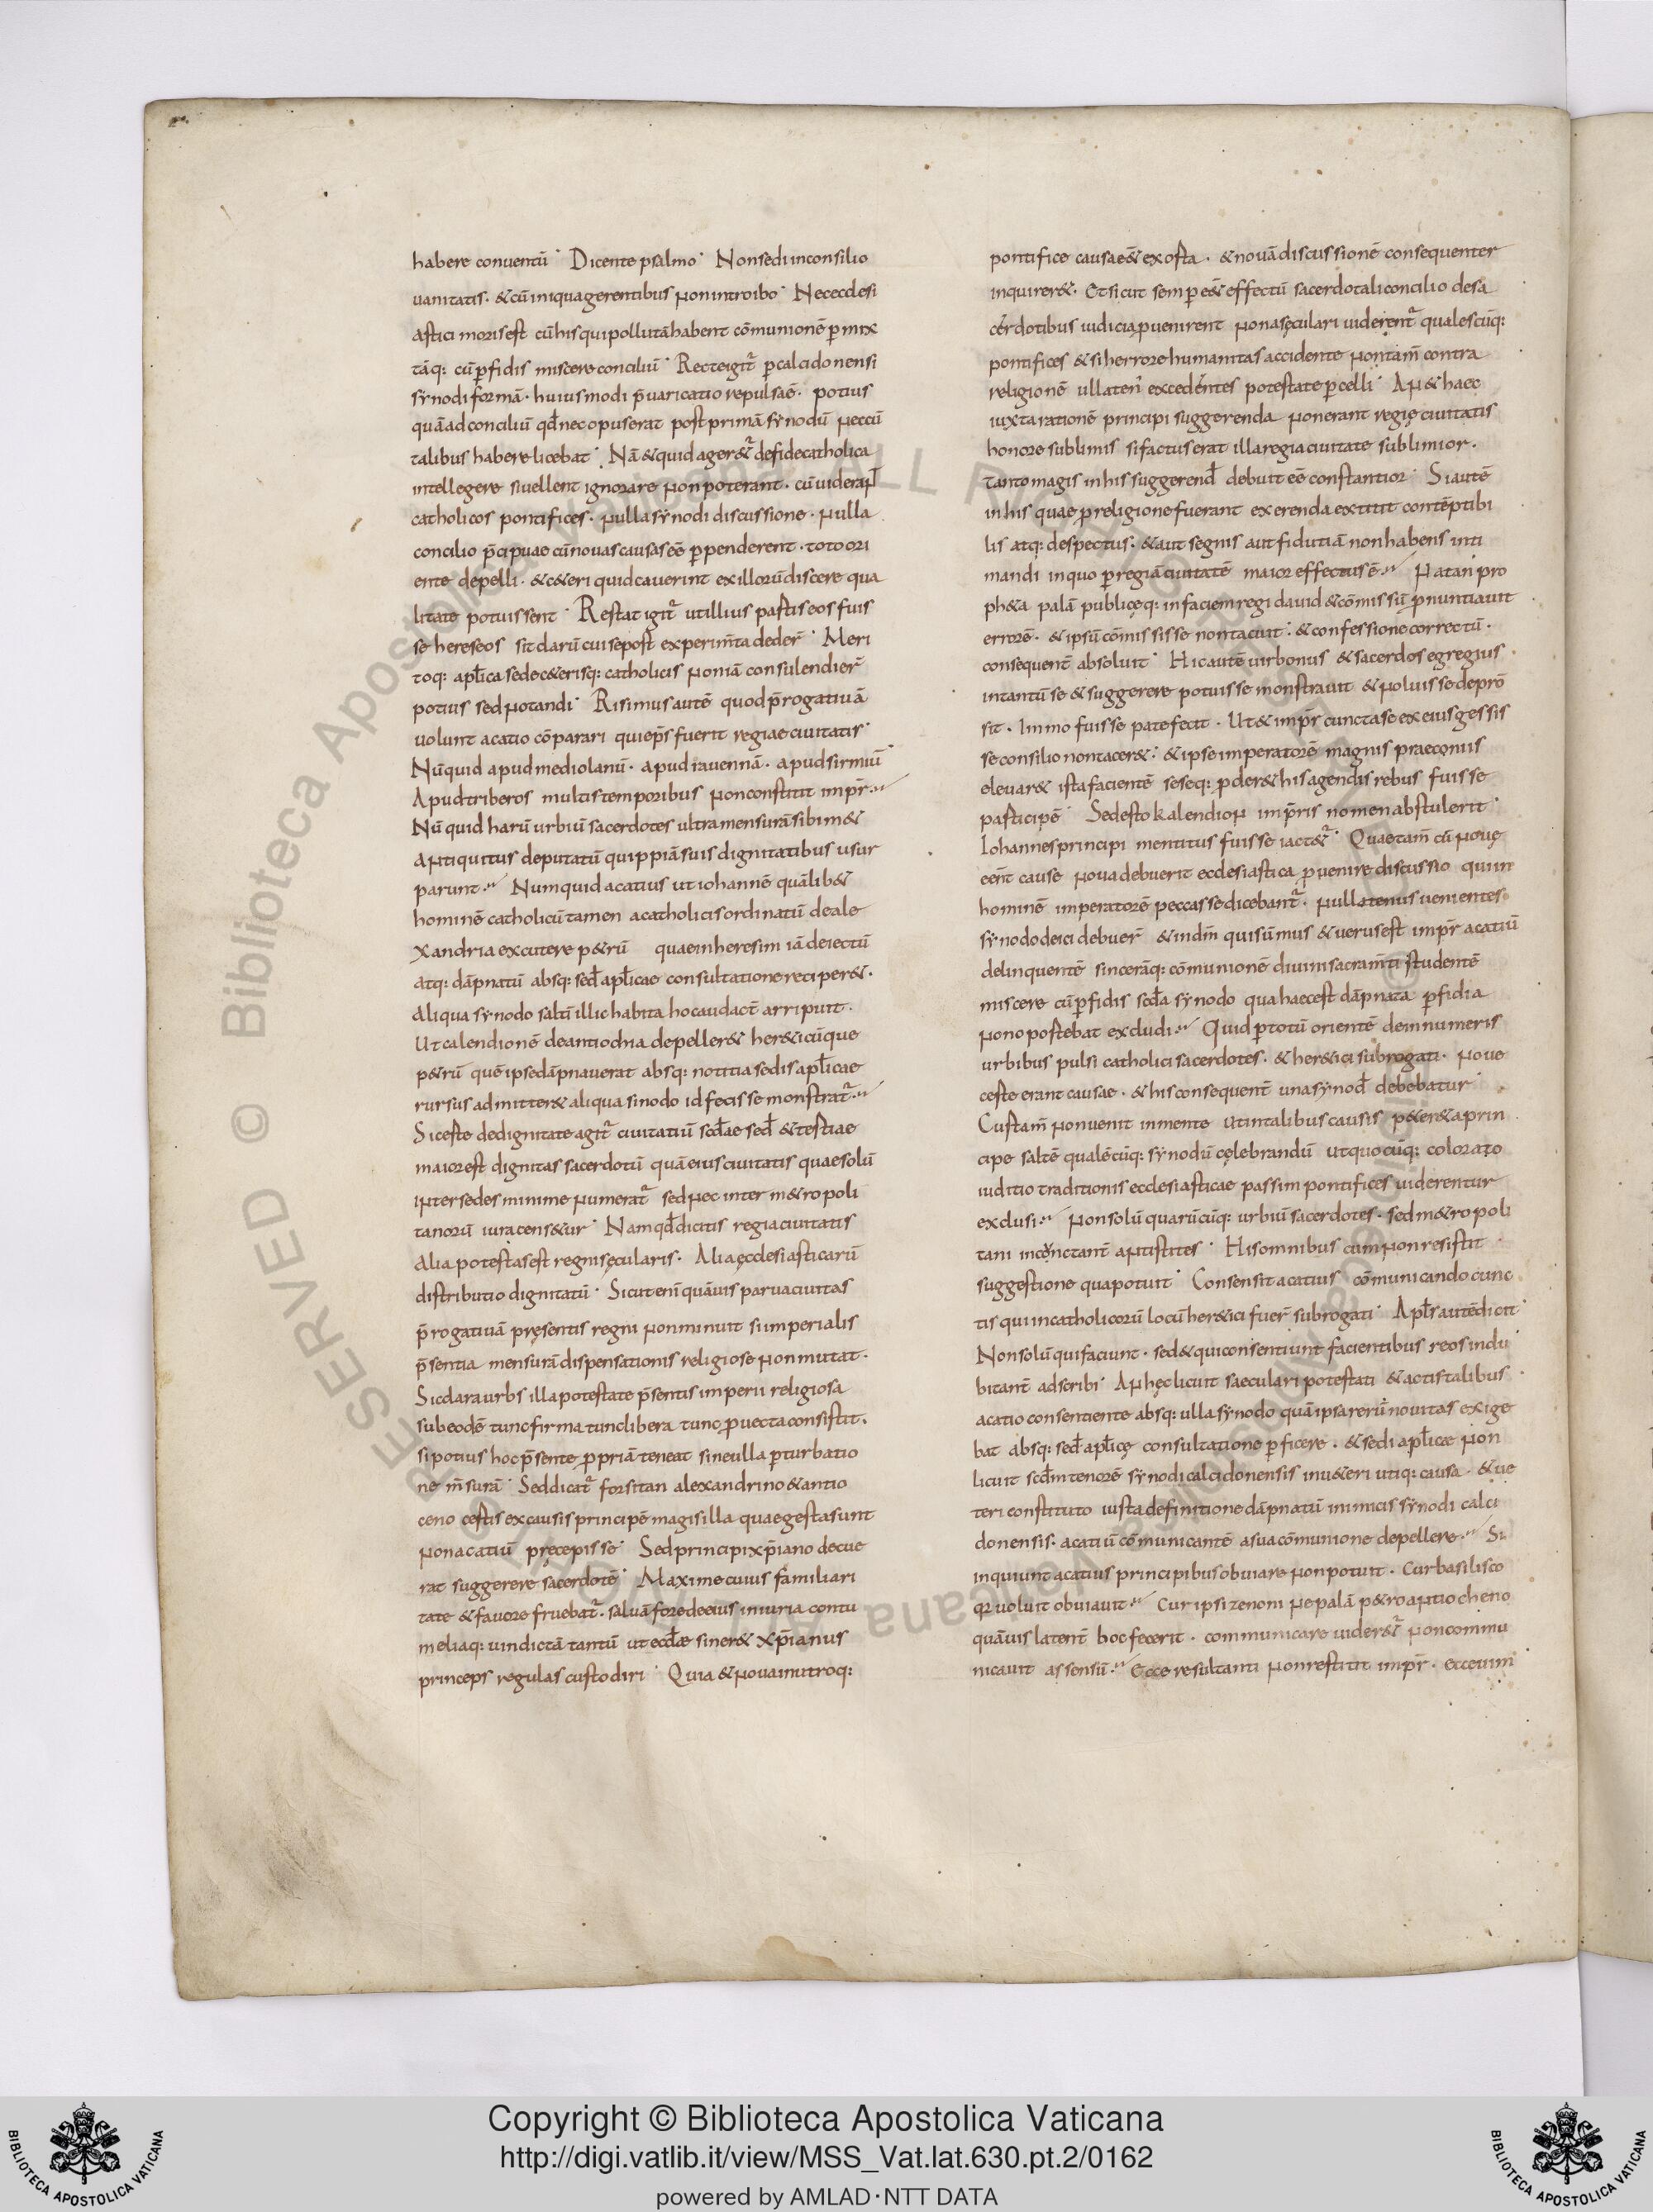 habere conuentū· Dicente psalmo· Non sedi in consilio
uanitatis· & cū iniqua gerentibus non introibo· Nec ecclesi
astici moris est cū his qui pollutā habent cōmunionē pmix
tāq: cū pfidis miscere conciliū· Recte igit̄ p calcidonensi
synodi formā· huiusmodi p̄uaricatio repulsa ē· potius
quā ad conciliū qd̄ nec opus erat post primā synodū nec cū
talibus habere licebat· Nā & quid ager&̄ de fide catholica
intellegere si uellent ignorare non poterant· cū uiderant̄
catholicos pontifices· nulla synodi discussione· nulla
concilio p̄cipuae cū nouas causas eē ppenderent· toto ori
ente depelli· & c&eri quid cauerint ex illorū discere qua
litate potuissent· Restat igit̄ ut illius pastis eos fuis
se hereseos sit clarū cui se post experim̄ta deder̄· Meri
toq: apl̄ica sede c&erisq: catholicis non iā consulendi er̄
potius sed notandi· Risimus autē quod p̄rogatiuā
uolunt acatio cōparari qui ep̄s fuerit regiae ciuitatis·
Nūquid apud mediolanū· apud rauennā· apud sirmiū·
Apud triberos multis temporibus non constitit imp̄r·
Nūquid harū urbiū sacerdotes ultra mensurā sibim&
antiquitus deputatū quippiā suis dignitatibus usur
parunt· Numquid acatius ut iohannē quālib&
hominē catholicū tamen a catholicis ordinatū de ale
xandria excutere p&rū quae in heresim iā deiectū
atq: dāpnatū absq: sed̄ apl̄icae consultatione reciper&·
Aliqua synodo saltū illic habita hoc audact̄ arripuit·
Ut calendionē de antiochia depeller& her&icūque
p&rū quē ipse dāpnauerat absq: notitia sedis apl̄icae
rursus admitter& aliqua sinodo id fecisse monstrat̄·
Si ceste de dignitate agit̄ ciuitatiū scd̄ae sed̄ & testiae
maior est dignitas sacerdotū quā eius ciuitatis quae solū
inter sedes minime numerat̄ sed nec inter m&ropoli
tanorū iura cens&ur· Nam qd̄ dicitis regia ciuitatis
Alia potestas est regni sęcularis· Alia ęcclesiasticarū
distributio dignitatū· Sicut eni quāuis parua ciuitas
p̄rogatiuā pręsentis regni non minuit si imperialis
p̄sentia mensurā dispensationis religiose non mutat·
Sic clara urbs illa potestate p̄sentis imperii religiosa
sub eodē tunc firma tunc libera tunc puecta consistit·
si potius hoc p̄sente ppriā teneat sine ulla pturbatio
ne m̄surā· Sed dicat̄ forsitan alexandrino & antio
ceno cestis ex causis principē magis illa quae gesta sunt
non acatiū pręcepisse· Sed principi xp̄iano decue
rat suggerere sacerdotē· Maxime cuius familiari
tate & fauore fruebat̄· saluā fore de eius iniuria contu
meliaq: uindictā tantū ut eccl̄ae siner& xp̄ianus
princeps regulas custodiri· Quia & noua in utroq:
pontifice causa e& exosta· & nouā discussionē consequenter
inquirer&· Et sicut semp e& effectū sacerdotali concilio de sa
cerdotibus iudicia puenirent non a sęculari uiderent̄ qualescūq:
pontifices & si herrore humanitas accidente non tam̄ contra
religionē ullaten̄ excedentes potestate pcelli· An & haec
iuxta rationē principi suggerenda non erant regię ciuitatis
honore sublimis si factus erat illa regia ciuitate sublimior·
tanto magis in his suggerend̄ debuit eē constantior· Si autē
in his quae p religione fuerant exerenda extitit contēptibi
lis atq: despectus· & aut segnis aut fidutiā non habens inti
mandi in quo p regiā ciuitatē maior effectus ē· Natan pro
ph&a palā publicęq: in faciem regi dauid & cōmissū pnuntiauit
errorē· & ipsū cōmississe non tacuit· & confessione correctū·
consequent̄ absoluit· Hic autē uir bonus & sacerdos egregius·
in tantū se & suggerere potuisse monstrauit & noluisse deprō
sit· Immo fuisse patefecit· Ut & imp̄r cuncta se ex eius gessis
se consilio non tacer&· & ipse imperatorē magnis praeconiis
eleuar& ista facientē seseq: pder& his agendis rebus fuisse
pasticipē· Sed esto kalendion imp̄ris nomen abstulerit·
Iohannes principi mentitus fuisse iact&̄· Quae tam̄ cū nouę
een̄t cause noua debuerit ecclesiastica puenire discussio qui in
hominē imperatorē peccasse dicebant̄· nullatenus uenientes
synodo deici debuer̄ & in dn̄m qui sūmus & uerus est imp̄r acatiū
delinquentē sincerāq: cōmunionē diuini sacram̄ti studentē
miscere cū pfidis scd̄a synodo qua haec est dāpnata pfidia
non opostebat excludi· Quid p totū orientē de innumeris
urbibus pulsi catholici sacerdotes· & her&ici subrogati· noue
ceste erant causae· & his consequent̄ una synod̄ debebatur·
Cus tam̄ non uenit in mente ut in talibus causis p&er& a prin
cipe saltē qualēcūq: synodū cęlebrandū ut quocūq: colorato
iuditio traditionis ecclesiasticae passim pontifices uiderentur
exclusi· Non solū quarūcūq: urbiū sacerdotes· sed m&ropoli
tani incōnctant̄ antistites· His omnibus cum non resistit
suggestione qua potuit· Consensit acatius cōmunicando cunc
tis qui in catholicorū locū her&ici fuer̄ subrogati· Apl̄s autē dicit·
Non solū qui faciunt· sed & qui consentiunt facientibus reos indu
bitant̄ adscribi· An hęc licuit saeculari potestati & actis talibus·
acatio consentiente absq: ulla synodo quā ipsa rerū nouitas exige
bat absq: sed̄ apl̄icę consultatione pficere· & sedi apl̄icae non
licuit scd̄m tenorē synodi calcidonensis inu&eri utiq: causa· & ue
teri constituto iusta definitione dāpnatū inimicis synodi calci
donensis· acatiū cōmunicantē a sua cōmunione depellere· Si
inquiunt acatius principibus obuiare non potuit· Cur basilisco
qr uoluit obuiauit· Cur ipsi zenoni ne palā p&ro antiocheno
quāuis latent̄ hoc fecerit· communicare uider&̄ non commu
nicauit assensū· Ecce resultanti non restitit imp̄r· ecce uim
Copyright © Biblioteca Apostolica Vaticana
http://digi.vatlib.it/view/MSS_Vat.lat.630.pt.2/0162
powered by AMLAD·NTT DATA